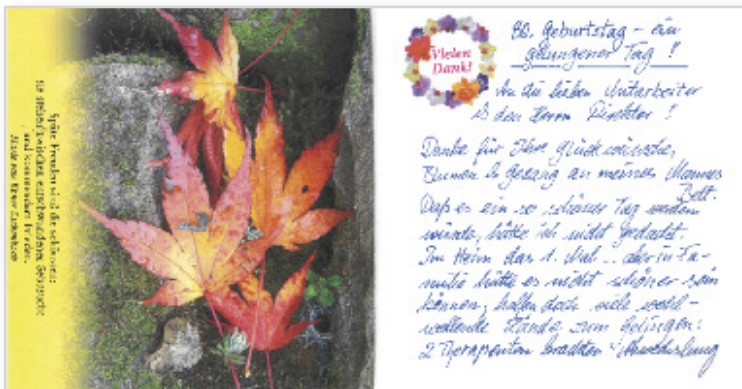 Späte Freuden sind die schönsten;
sie stehen zwischen entschwundener Sehnsucht
und kommendem Frieden.
Marie von Ebner-Eschenbach
Vielen
Dank!
80. Geburtstag – ein
gelungener Tag !
An die lieben Mitarbeiter
& den Herrn Direktor !
Danke für Ihre Glückwünsche,
Blumen & Gesang an meines Mannes
Bett.
Daß es ein so schöner Tag werden
würde, hätte ich nicht gedacht.
Im Heim das 1. Mal .. aber in Fa-
milie hätte es nicht schöner sein
können, halfen doch viele wohl-
wollende Hände zum Gelingen:
2 Therapeuten brachten Abwechslung